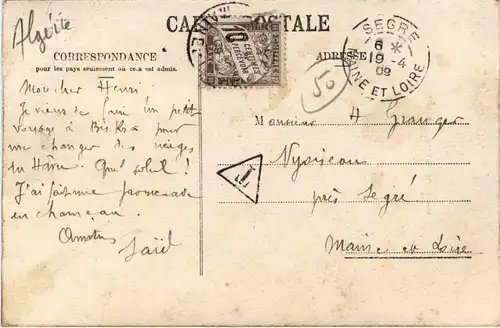 Algérie
CARTE POSTALE
CORRESPONDANCE
pour les pays seulement où ce.a est admis.
ADRESSE
SEGRÉ
6 *
19 -4
09
MAINE ET LOIRE
10
CENTIMES
A PERCEVOIR
50
T
Moncher Henri
Je viens de faire un petit
voyage à Biskra pour
me changer des neiges
du Hâvre. Quel soleil !
J'ai fait une promenade
en chameau.
Saïd
Monsieur H Granger
près Segré
Maine et Loire